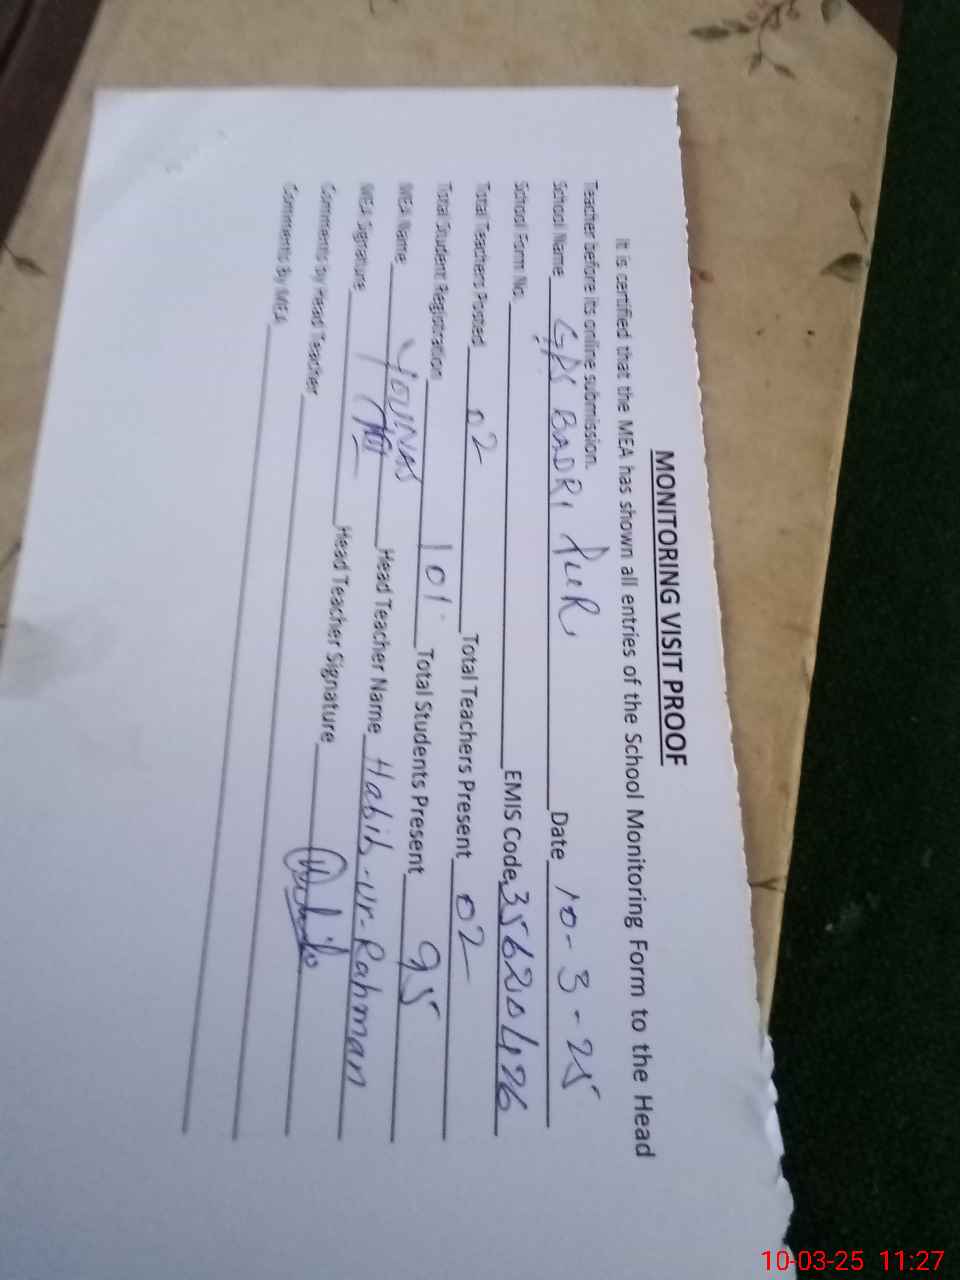 MONITORING VISIT PROOF
It is certified that the MEA has shown all entries of the School Monitoring Form to the Head
Teacher before its online submission.
School Name GPS BADRI PUR Date 10-3-25
School Form No. EMIS Code 35620426
Total Teachers Posted 02 Total Teachers Present 02
Total Student Registration 101 Total Students Present 95
MEA Name YOUNAS Head Teacher Name Habib-ur-Rahman
MEA Signature Head Teacher Signature
Comments by Head Teacher
Comments By MEA
10-03-25 11:27